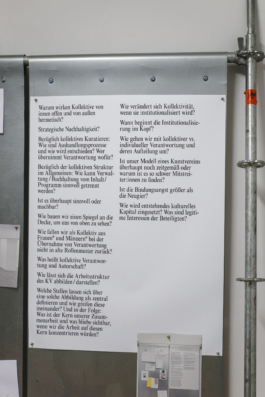 Warum wirken Kollektive von
innen offen und von außen
hermetisch?
Strategische Nachhaltigkeit?
Bezüglich kollektives Kuratieren:
Wie sind Aushandlungsprozesse
und wie wird entschieden? Wer
übernimmt Verantwortung wofür?
Bezüglich der kollektiven Struktur
im Allgemeinen: Wie kann Verwal-
tung / Buchhaltung von Inhalt/
Programm sinnvoll getrennt
werden?
Ist es überhaupt sinnvoll oder
machbar?
Wie bauen wir einen Spiegel an die
Decke, um uns von oben zu sehen?
Wie fallen wir als Kollektiv aus
Frauen* und Männern* bei der
Übernahme von Verantwortung
nicht in alte Rollenmuster zurück?
Was heißt kollektive Verantwor-
tung und Autorschaft?
Wie lässt sich die Arbeitsstruktur
des KV abbilden / darstellen?
Welche Stellen lassen sich über
eine solche Abbildung als zentral
definieren und wie greifen diese
ineinander? Und in der Folge:
Was ist der Kern unserer Zusam-
menarbeit und was bliebe sichtbar,
wenn wir die Arbeit auf diesen
Kern konzentrieren würden?
Wie verändert sich Kollektivität,
wenn sie institutionalisiert wird?
Wann beginnt die Institutionalisie-
rung im Kopf?
Wie gehen wir mit kollektiver vs.
individueller Verantwortung und
deren Aufteilung um?
Ist unser Modell eines Kunstvereins
überhaupt noch zeitgemäß oder
warum ist es so schwer Mitstrei-
ter:innen zu finden?
Ist die Bindungsangst größer als
die Neugier?
Wie wird entstehendes kulturelles
Kapital eingesetzt? Was sind legiti-
me Interessen der Beteiligten?